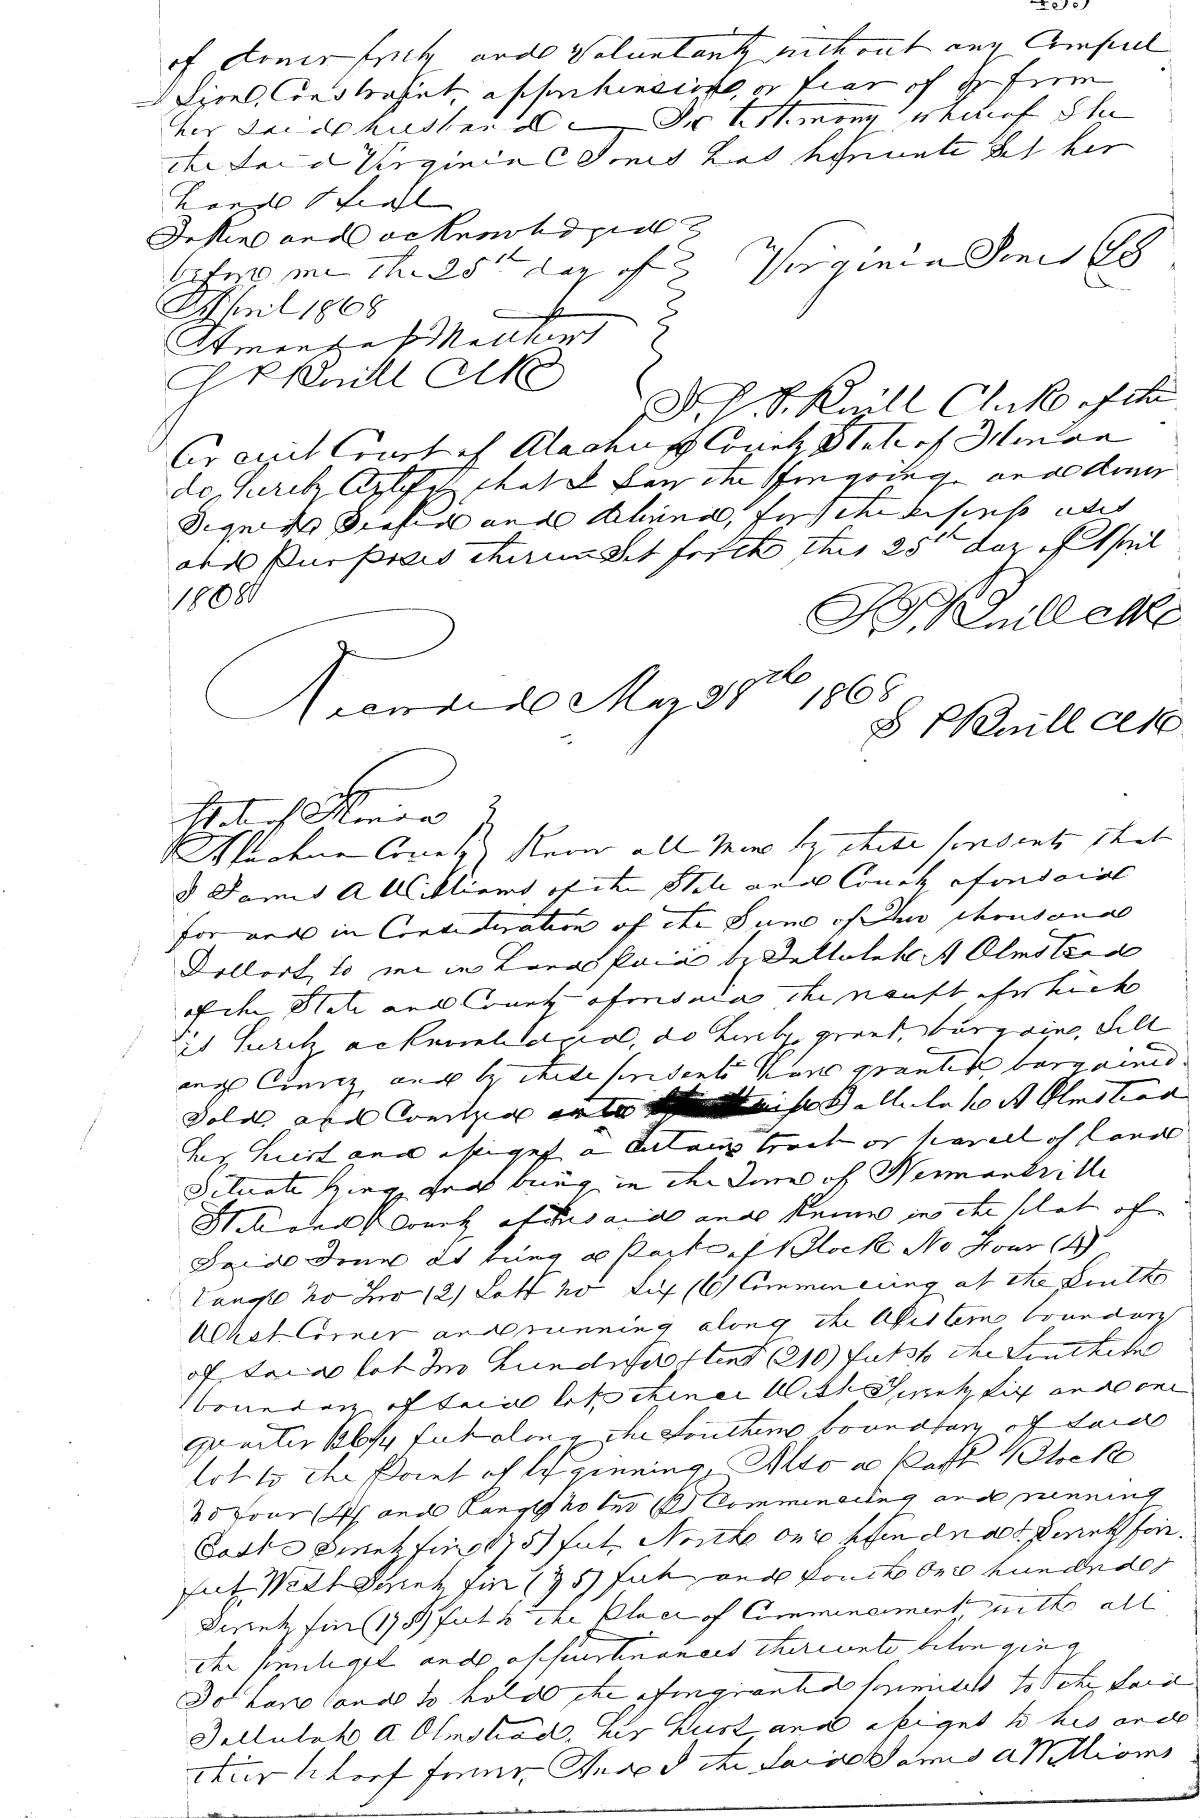 of dower freely and Voluntarily without any Compul
sion, Constraint, apprehension, or fear of or from
her said husband In testimony whereof She
the Said Virginia C Jones has hereunto Set her
hand & Seal
Taken and acknowledged
before me the 25th day of Virginia Jones LS
April 1868
Matthews
S P Knill Clk
I, S. P. Knill Clerk of the
Circuit Court of Alachua County State of Florida
do hereby Certify that I Saw the foregoing and dower
Signed Sealed and delivered, for the express uses
and Purposes therein Set forth this 25th day of April
1868
S P. Knill Clk
Recorded May 28th 1868
S P Knill Clk
State of Florida
Alachua County Know all Men by these presents that
I James A Williams of the State and County aforesaid
for and in Consideration of the Sum of Two thousand
Dollars, to me in hand Paid by Tallulah A Olmstead
of the State and County aforesaid the receipt of which
is hereby acknowledged, do hereby grant, bargain, Sell
and Convey, and by these presents have granted, bargained
Sold, and Conveyed unto Tallulah A Olmstead
her heirs and assigns a certain tract or parcell of land
Situate lying and being in the Town of Newnansville
State and County aforesaid and Known in the plat of
Said Town as being a Part of Block No Four (4)
Range No Two (2) Lott No Six (6) Commencing at the South
West Corner and running along the Western boundary
of Said lot Two hundred ten (210) feet to the Southern
boundary of Said lot, thence West Seventy Six and one
quarter feet along the Southern boundary of Said
lot to the Point of beginning, Also a Part Block
No four (4) and Range No two (2) Commencing and running
East Seventy five (75) feet, North One hundred & Seventy five
feet, West Seventy five (75) feet and South One hundred &
Seventy five (175) feet to the Place of Commencement, with all
the privileges and appurtenances thereunto belonging
To have and to hold the aforegranted premises to the Said
Tallulah A Olmstead, her heirs and assigns to his and
their behoof forever, And I the Said James A Williams